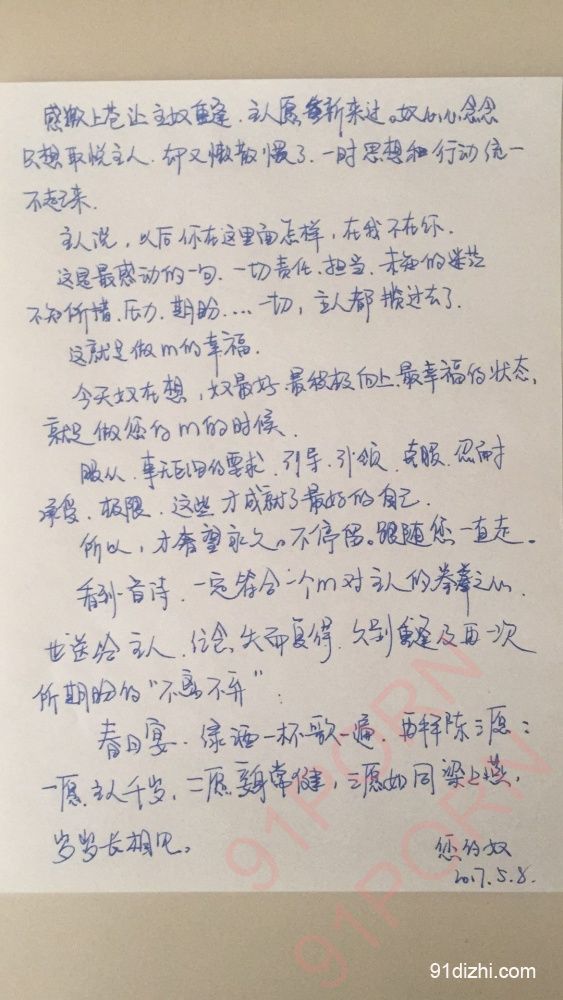 感激上苍让主奴重逢.主人愿重新来过。奴心心念念
只想取悦主人.却又懒散惯了.一时思想和行动统一
不起来.
主人说，以后你在这里面怎样，在我不在你.
这是最感动的一句.一切责任.担当.未知的迷茫
不知所措.压力.期盼....一切，主人都揽过去了.
这就是做m的幸福.
今天奴在想，奴最好.最积极向上.最幸福的状态，
就是做您的m的时候.
服从.事无巨细的要求.引导.引领.克服.忍耐
承受.极限.这些才成就了最好的自己.
所以，才奢望永久。不停留。跟随您一直走。
看到一首诗.一定符合一个m对主人的拳拳之心.
也送给主人.纪念失而复得.久别重逢及再一次
所期盼的“不离不弃”：
春日宴.绿酒一杯歌一遍.再拜陈三愿：
一愿主人千岁，二愿妾身常健，三愿如同梁上燕，
岁岁长相见。
您的奴
2017.5.8.
91PORN
91PORN
91dizhi.com